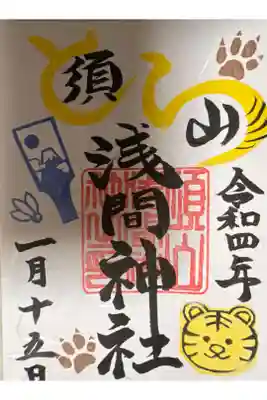 とら
須山
浅間神社
令和四年
一月十五日